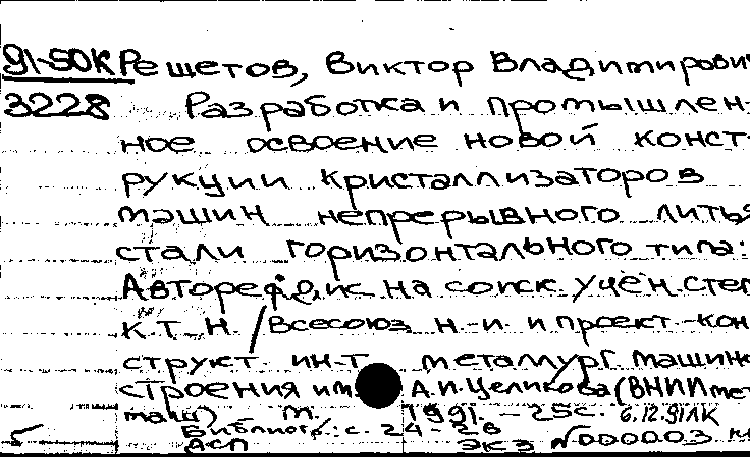 91-50К Решетов, Виктор Владимирови
3228 Разработка и промышлен-
ное освоение новой конст-
рукции кристаллизаторов
машин непрерывного литья
стали горизонтального типа:
Автореф. дис. на соиск. учен. степ.
к.т.н. / Всесоюз. н.-и. и проект.-кон-
структ. ин-т металлург. машино-
строения им. А.И. Целикова (ВНИИмет-
маш) М. 1991. - 25с. 6.12.91ЛК
Библиогр.: с. 24-25
5 ДСП экз №000003